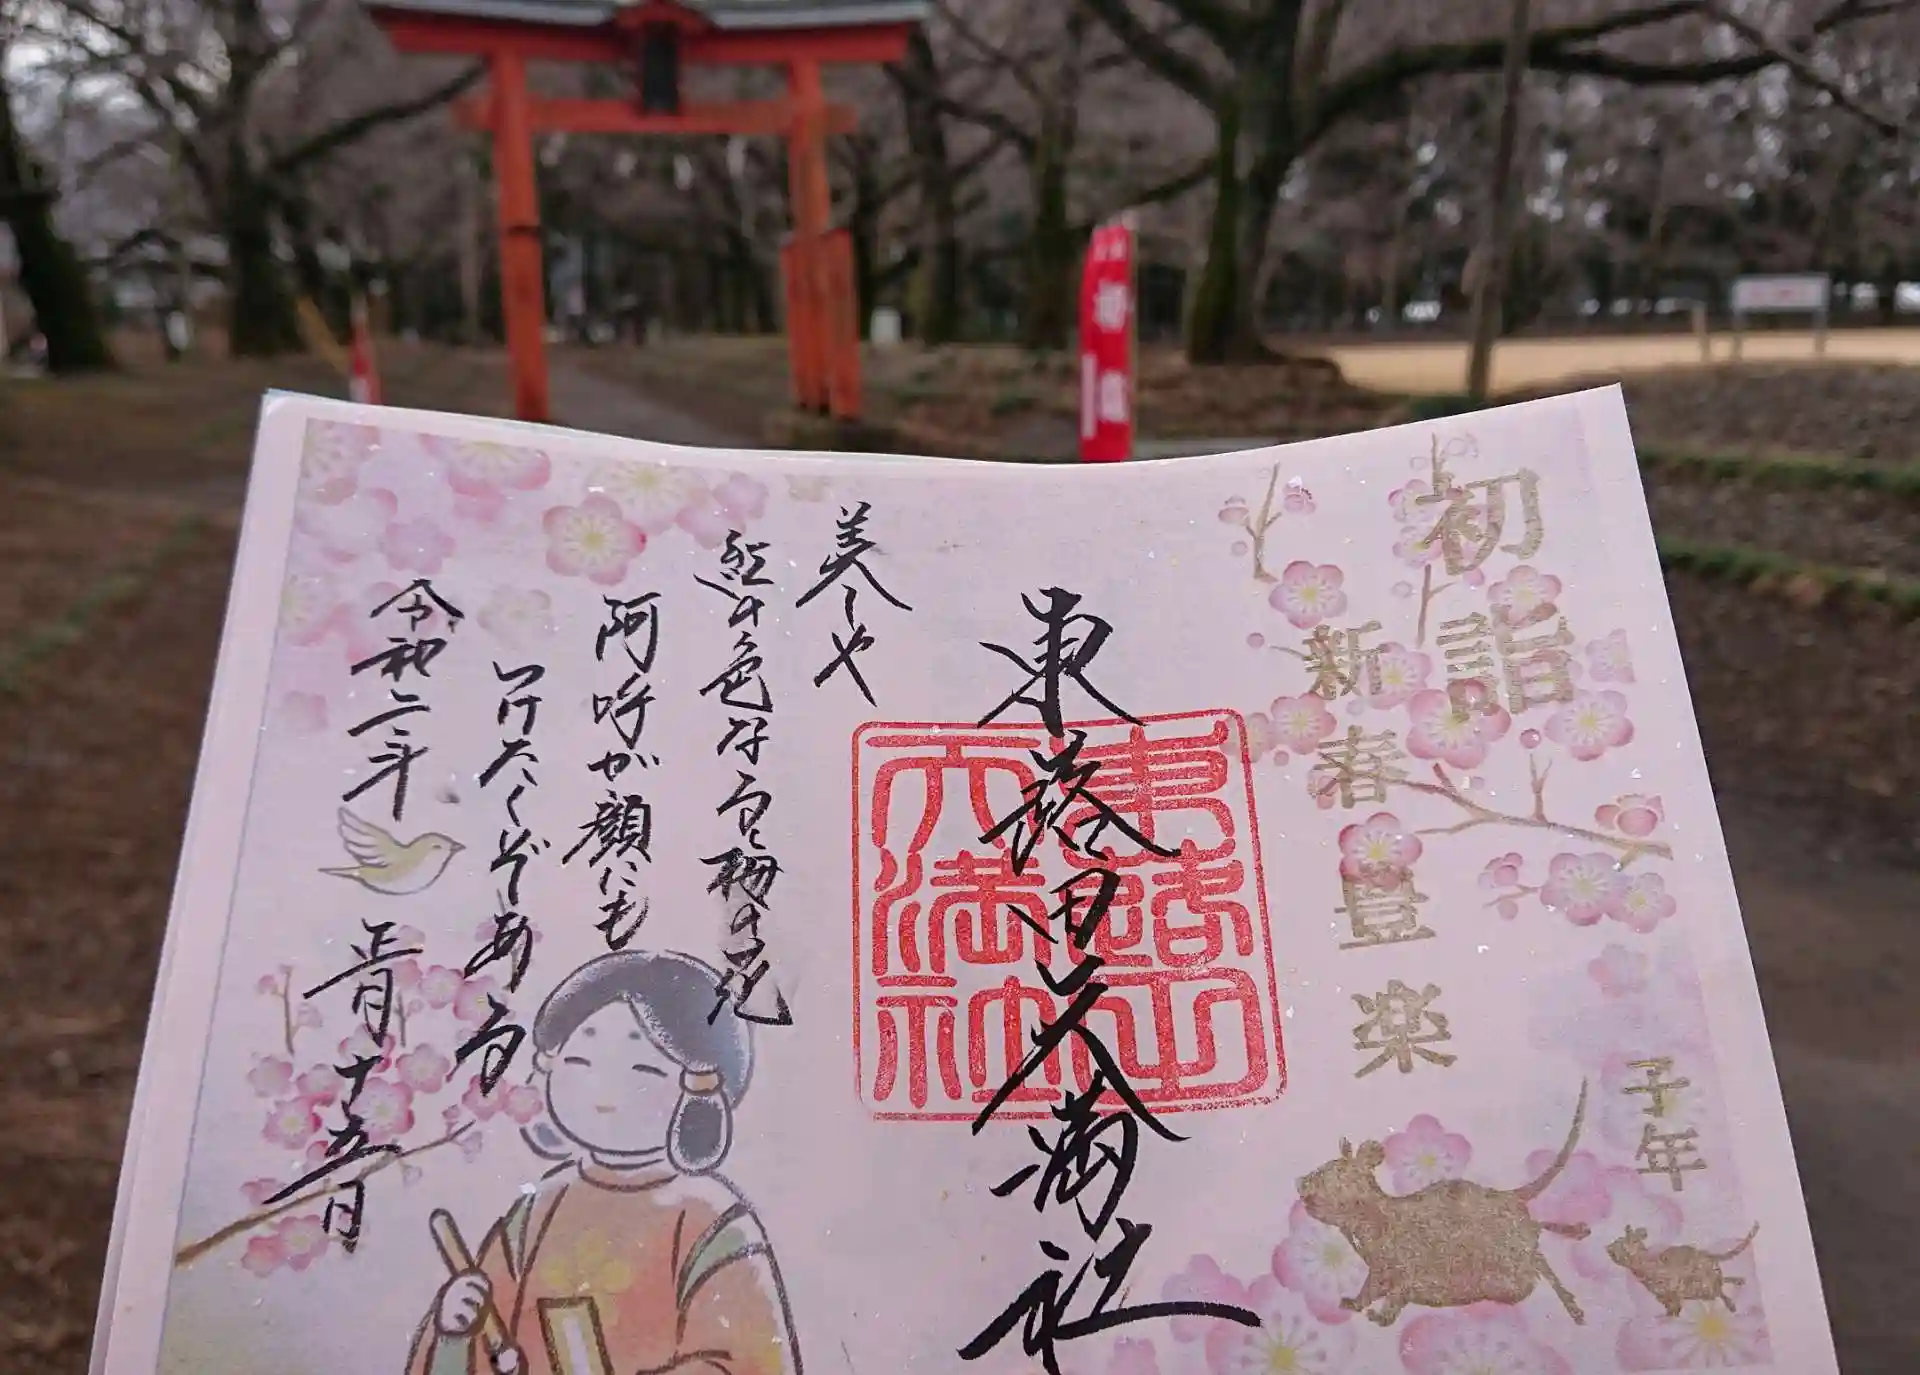 初詣
新春豊楽
子年
東蕗田天満社
東蕗田
天満社
美しや
紅の色なる梅の花
阿呼が顔にも
つけたくぞある
令和二年 正月十五日